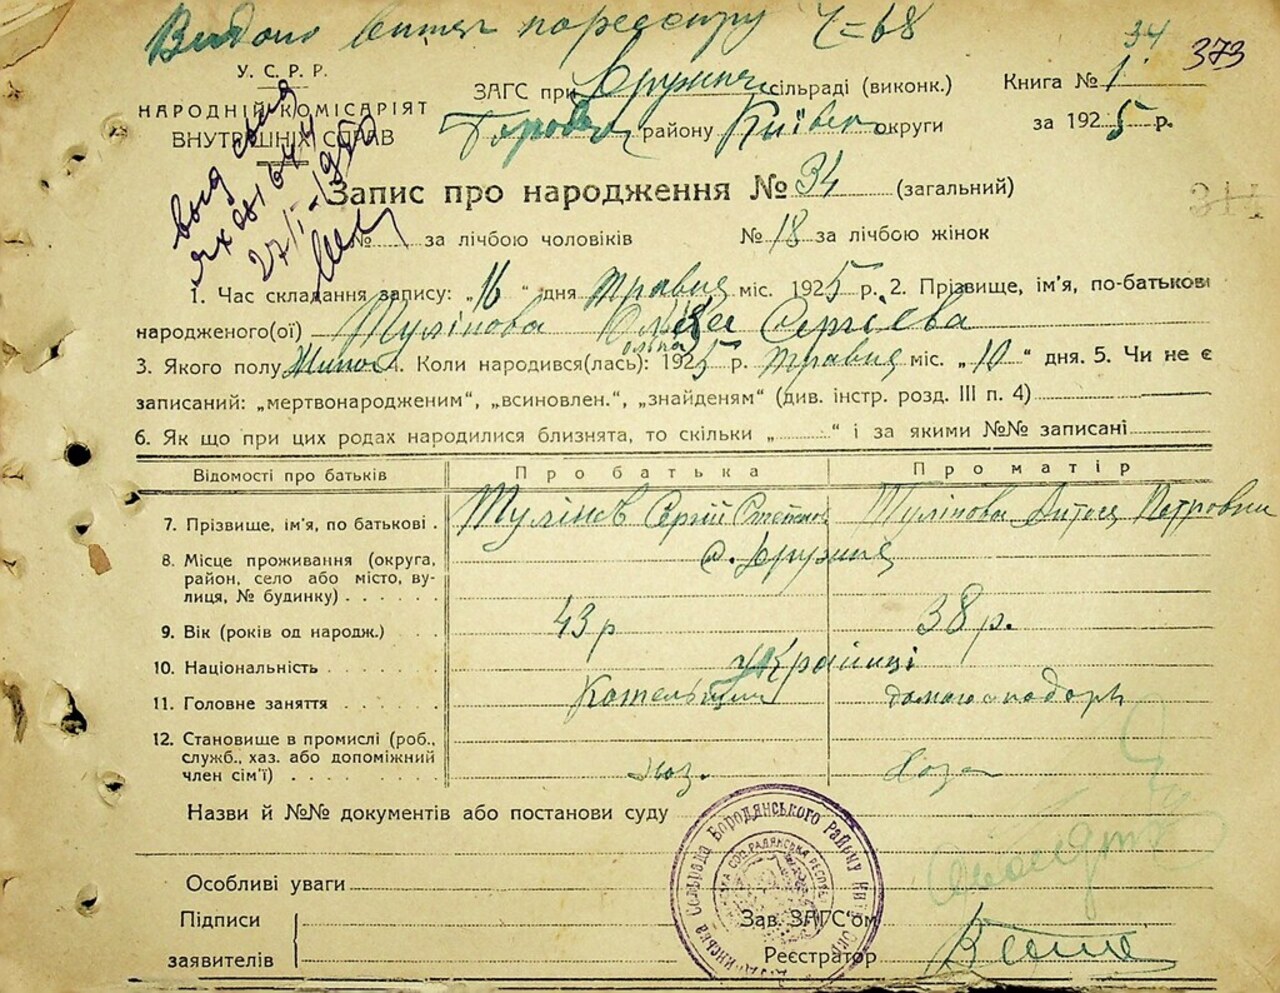 Видано витяг по реєстру Ч=68
34
373
У. С. Р. Р.
НАРОДНІЙ КОМІСАРІЯТ
ВНУТРЕШНІХ СПРАВ
ЗАГС при Дружин. сільраді (виконк.)
Бородян району Київськ округи
Книга № 1
за 1925 р.
Запис про народження № 34 (загальний)
311
27/I-1950
№ за лічбою чоловіків № 18 за лічбою жінок
1. Час складання запису: „16“ дня травня міс. 1925 р. 2. Прізвище, ім'я, по-батькові
народженого(ої) Тулінова Сергієва
Ольга
3. Якого полу Жіноч 4. Коли народився(лась): 1925 р. травня міс. „10“ дня. 5. Чи не є
записаний: „мертвонародженим“, „всиновлен.“, „знайденям“ (див. інстр. розд. III п. 4)
6. Як що при цих родах народилися близнята, то скільки „ “ і за якими №№ записані
Відомості про батьків Про батька Про матір
7. Прізвище, ім'я, по батькові . Тулінов Сергій Степанов Тулінова Петровна
8. Місце проживання (округа, с. Дружня
район, село або місто, ву-
лиця, № будинку) . . . . . .
9. Вік (років од народж.) . . 43 р 38 р.
10. Національність . . . . . Українці
11. Головне заняття . . . . . Котельщик домогосподарк
12. Становище в промислі (роб.,
служб., хаз. або допоміжний
член сім'ї) . . . . . . . . хоз. Хоза
Назви й №№ документів або постанови суду
Особливі уваги
Підписи
заявителів
Зав. ЗАГС'ом
Реєстратор
Сельрада Бородянського Району Київ. Окр.
СОЦ. РАДЯНСЬКА РЕСПУБ